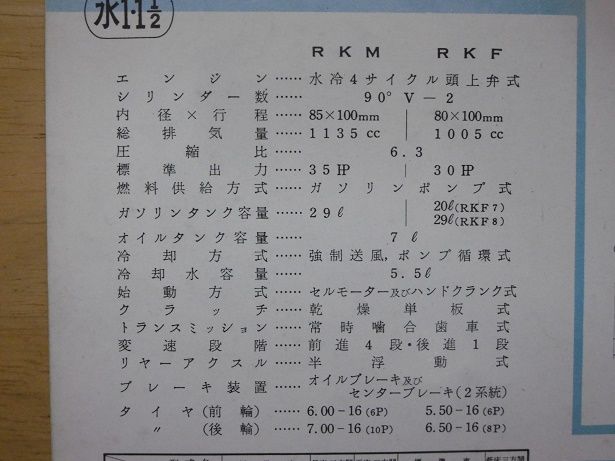 水1·1½
RKM RKF
エンジン……水冷4サイクル頭上弁式
シリンダー数……90° V－2
内径×行程……85×100mm | 80×100mm
総排気量……1135cc | 1005cc
圧縮比……6.3
標準出力……35HP | 30HP
燃料供給方式……ガソリンポンプ式
ガソリンタンク容量……29ℓ | 20ℓ(RKF7)
29ℓ(RKF8)
オイルタンク容量……7ℓ
冷却方式……強制送風,ポンプ循環式
冷却水容量……5.5ℓ
始動方式……セルモーター及びハンドクランク式
クラッチ……乾燥単板式
トランスミッション……常時噛合歯車式
変速段階……前進4段・後進1段
リヤーアクスル……半浮動式
ブレーキ装置……オイルブレーキ及び
センターブレーキ(2系統)
タイヤ(前輪)……6.00－16(6P) 5.50－16(6P)
〃(後輪)……7.00－16(10P) 6.50－16(8P)